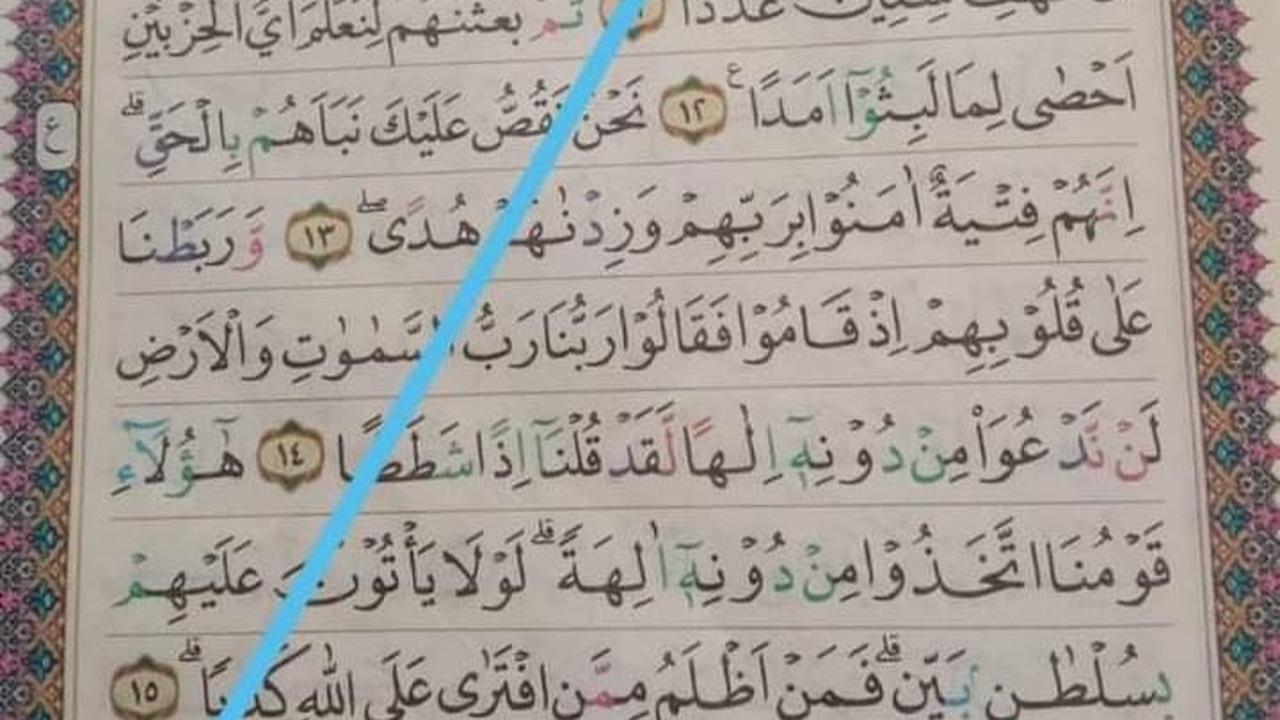 سِنِيْنَ عَدَدًا ثُمَّ بَعَثْنٰهُمْ لِنَعْلَمَ اَيُّ الْحِزْبَيْنِ
اَحْصٰى لِمَا لَبِثُوْٓا اَمَدًا ࣖ ١٢ نَحْنُ نَقُصُّ عَلَيْكَ نَبَاَهُمْ بِالْحَقِّۗ
ع
اِنَّهُمْ فِتْيَةٌ اٰمَنُوْا بِرَبِّهِمْ وَزِدْنٰهُمْ هُدًىۖ ١٣ وَّرَبَطْنَا
عَلٰى قُلُوْبِهِمْ اِذْ قَامُوْا فَقَالُوْا رَبُّنَا رَبُّ السَّمٰوٰتِ وَالْاَرْضِ
لَنْ نَّدْعُوَا۟ مِنْ دُوْنِهٖٓ اِلٰهًا لَّقَدْ قُلْنَآ اِذًا شَطَطًا ١٤ هٰٓؤُلَاۤءِ
قَوْمُنَا اتَّخَذُوْا مِنْ دُوْنِهٖٓ اٰلِهَةًۗ لَوْلَا يَأْتُوْنَ عَلَيْهِمْ
بِسُلْطٰنٍۢ بَيِّنٍۗ فَمَنْ اَظْلَمُ مِمَّنِ افْتَرٰى عَلَى اللّٰهِ كَذِبًاۗ ١٥